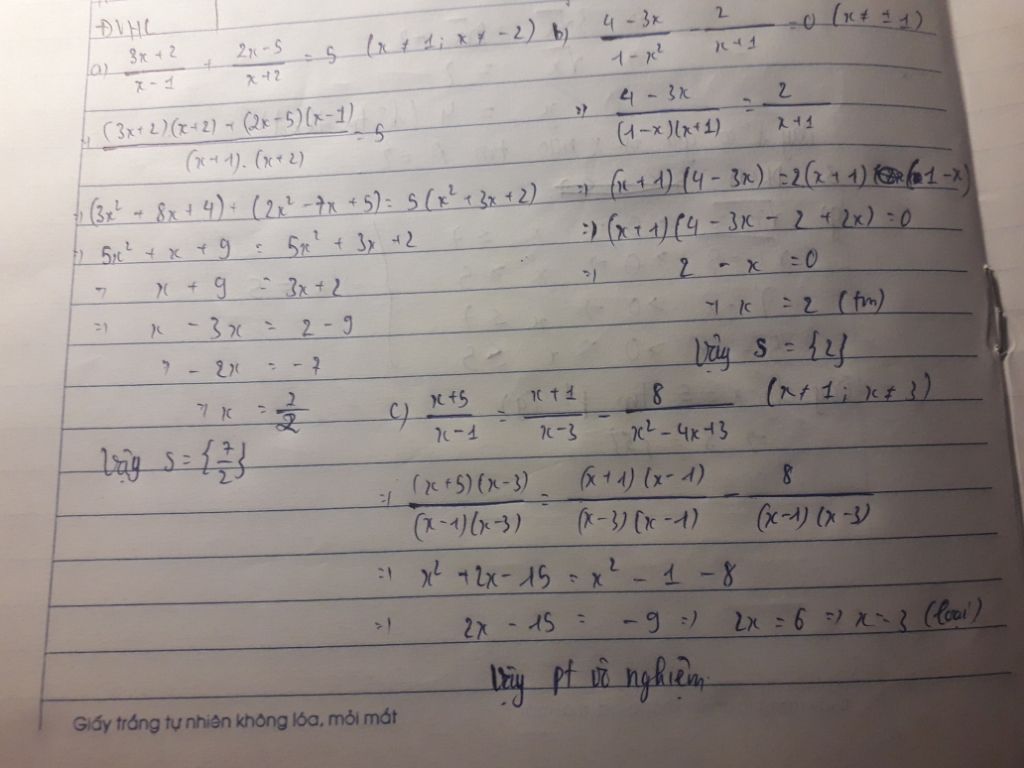 ĐVHC
a) (3x + 2)/(x - 1) + (2x - 5)/(x + 2) = 5 (x ≠ 1; x ≠ -2)
⇒ ((3x+2)(x+2) + (2x-5)(x-1))/((x+1).(x+2)) = 5
⇒ (3x² + 8x + 4) + (2x² - 7x + 5) = 5(x² + 3x + 2)
⇒ 5x² + x + 9 = 5x² + 3x + 2
⇒ x + 9 = 3x + 2
⇒ x - 3x = 2 - 9
⇒ - 2x = - 7
⇒ x = 7/2
Vậy S = {7/2}
b) (4 - 3x)/(1 - x²) - 2/(x + 1) = 0 (x ≠ ± 1)
⇒ (4 - 3x)/((1-x)(x+1)) = 2/(x+1)
⇒ (x+1)(4 - 3x) = 2(x+1)(1-x)
⇒ (x+1)(4 - 3x - 2 + 2x) = 0
⇒ 2 - x = 0
⇒ x = 2 (tm)
Vậy S = {2}
c) (x+5)/(x-1) = (x+1)/(x-3) - 8/(x² - 4x + 3) (x ≠ 1; x ≠ 3)
⇒ ((x+5)(x-3))/((x-1)(x-3)) = ((x+1)(x-1))/((x-3)(x-1)) - 8/((x-1)(x-3))
⇒ x² + 2x - 15 = x² - 1 - 8
⇒ 2x - 15 = - 9 ⇒ 2x = 6 ⇒ x = 3 (loại)
Vậy pt vô nghiệm
Giấy trắng tự nhiên không lóa, mỏi mắt